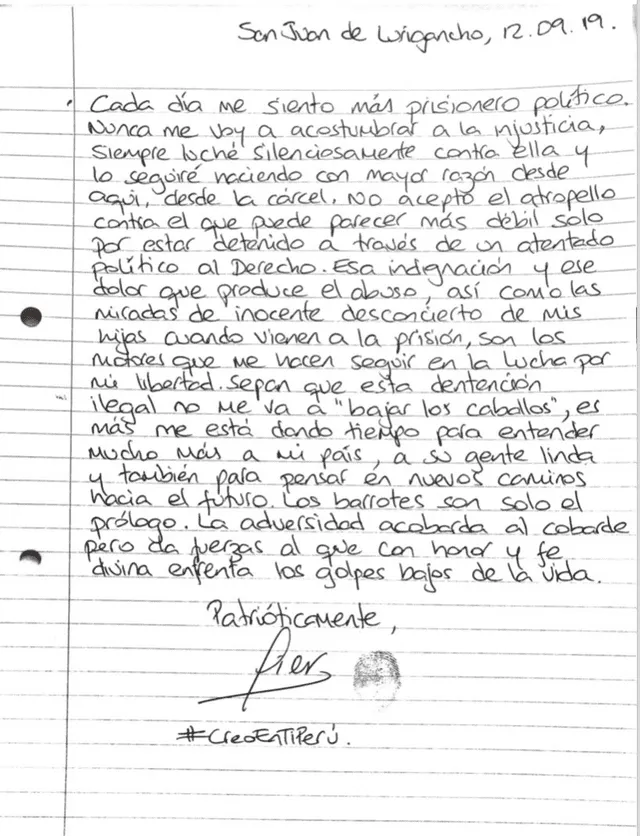 San Juan de Lurigancho, 12.09.19.
Cada día me siento más prisionero político.
Nunca me voy a acostumbrar a la injusticia,
siempre luché silenciosamente contra ella y
lo seguiré haciendo con mayor razón desde
aquí, desde la cárcel. No acepto el atropello
contra el que puede parecer más débil solo
por estar detenido a través de un atentado
político al Derecho. Esa indignación y ese
dolor que produce el abuso, así como las
miradas de inocente desconcierto de mis
hijas cuando vienen a la prisión, son los
motores que me hacen seguir en la lucha por
mi libertad. Sepan que esta dentención
ilegal no me va a "bajar los caballos", es
más me está dando tiempo para entender
mucho más a mi país, a su gente linda
y también para pensar en nuevos caminos
hacia el futuro. Los barrotes son solo el
prólogo. La adversidad acobarda al cobarde
pero da fuerzas al que con honor y fe
divina enfrenta los golpes bajos de la vida.
Patrióticamente,
Pier
#CreoEnTiPerú.